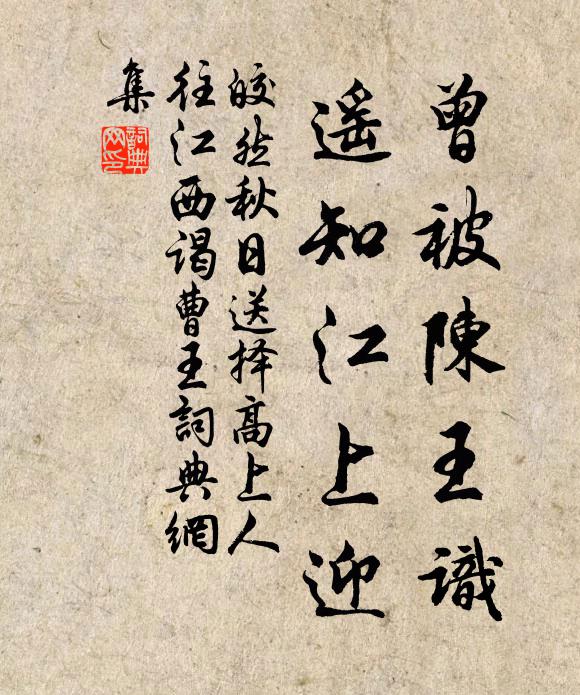 曾被陳王識
遥知江上迎
皎然秋日送择高上人
往江西謁曹王詞典網
集
詞典
网印